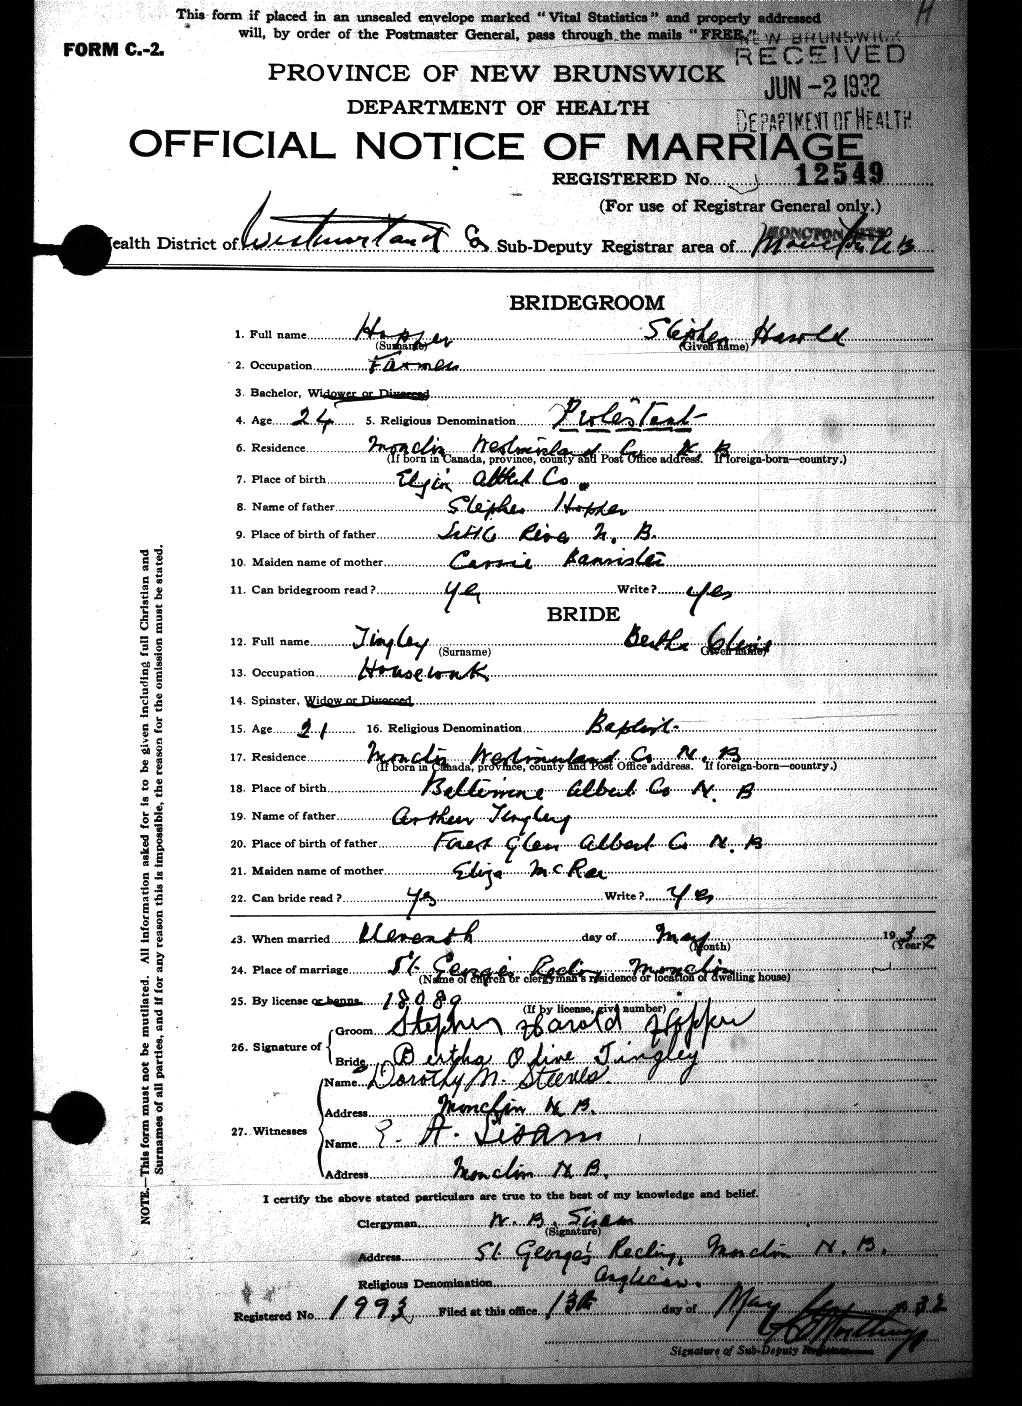 This form if placed in an unsealed envelope marked "Vital Statistics" and properly addressed
will, by order of the Postmaster General, pass through the mails "FREE."
H
FORM C.-2.
NEW BRUNSWICK
RECEIVED
JUN -2 1932
DEPARTMENT OF HEALTH
PROVINCE OF NEW BRUNSWICK
DEPARTMENT OF HEALTH
OFFICIAL NOTICE OF MARRIAGE
REGISTERED No. 12549
(For use of Registrar General only.)
Health District of Westmorland Co Sub-Deputy Registrar area of Moncton N B
BRIDEGROOM
1. Full name Hopper Stephen Harold
(Surname) (Given name)
2. Occupation Farmer
3. Bachelor, Widower or Divorced
4. Age 24 5. Religious Denomination Protestant
6. Residence Moncton Westmorland Co N B
(If born in Canada, province, county and Post Office address. If foreign-born—country.)
7. Place of birth Elgin Albert Co.
8. Name of father Stephen Hopper
9. Place of birth of father Little River N. B.
10. Maiden name of mother Carrie Bannister
11. Can bridegroom read? Yes Write? Yes
BRIDE
12. Full name Tingley Bertha Olive
(Surname) (Given name)
13. Occupation Housework
14. Spinster, Widow or Divorced
15. Age 21 16. Religious Denomination Baptist
17. Residence Moncton Westmorland Co N. B
(If born in Canada, province, county and Post Office address. If foreign-born—country.)
18. Place of birth Baltimore Albert Co N. B
19. Name of father Arthur Tingley
20. Place of birth of father Forest Glen Albert Co N. B
21. Maiden name of mother Eliza McRae
22. Can bride read? Yes Write? Yes
23. When married Eleventh day of May 1932
(Month) (Year)
24. Place of marriage St. George's Rectory Moncton
(Name of church or clergyman's residence or location of dwelling house)
25. By license or banns 18089
(If by license, give number)
26. Signature of
Groom Stephen Harold Hopper
Bride Bertha Olive Tingley
27. Witnesses
Name Dorothy M. Steeves.
Address Moncton N. B.
Name E. A. Sisam
Address Moncton N B.
I certify the above stated particulars are true to the best of my knowledge and belief.
Clergyman W. B. Sisam
(Signature)
Address St. George's Rectory, Moncton N. B.
Religious Denomination Anglican.
Registered No. 1993 Filed at this office 13th day of May 1932
Signature of Sub-Deputy Registrar
NOTE.—This form must not be mutilated. All information asked for is to be given including full Christian and
Surnames of all parties, and if for any reason this is impossible, the reason for the omission must be stated.